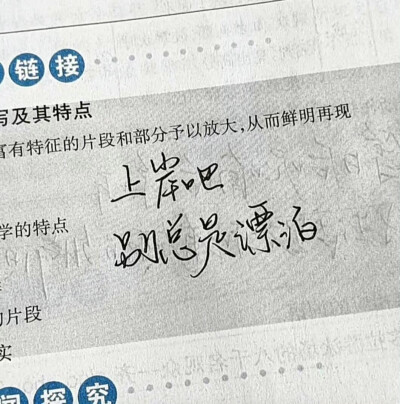 链接
写及其特点
富有特征的片段和部分予以放大，从而鲜明再现
上岸吧
学的特点
别总是漂泊
的片段
实
探究